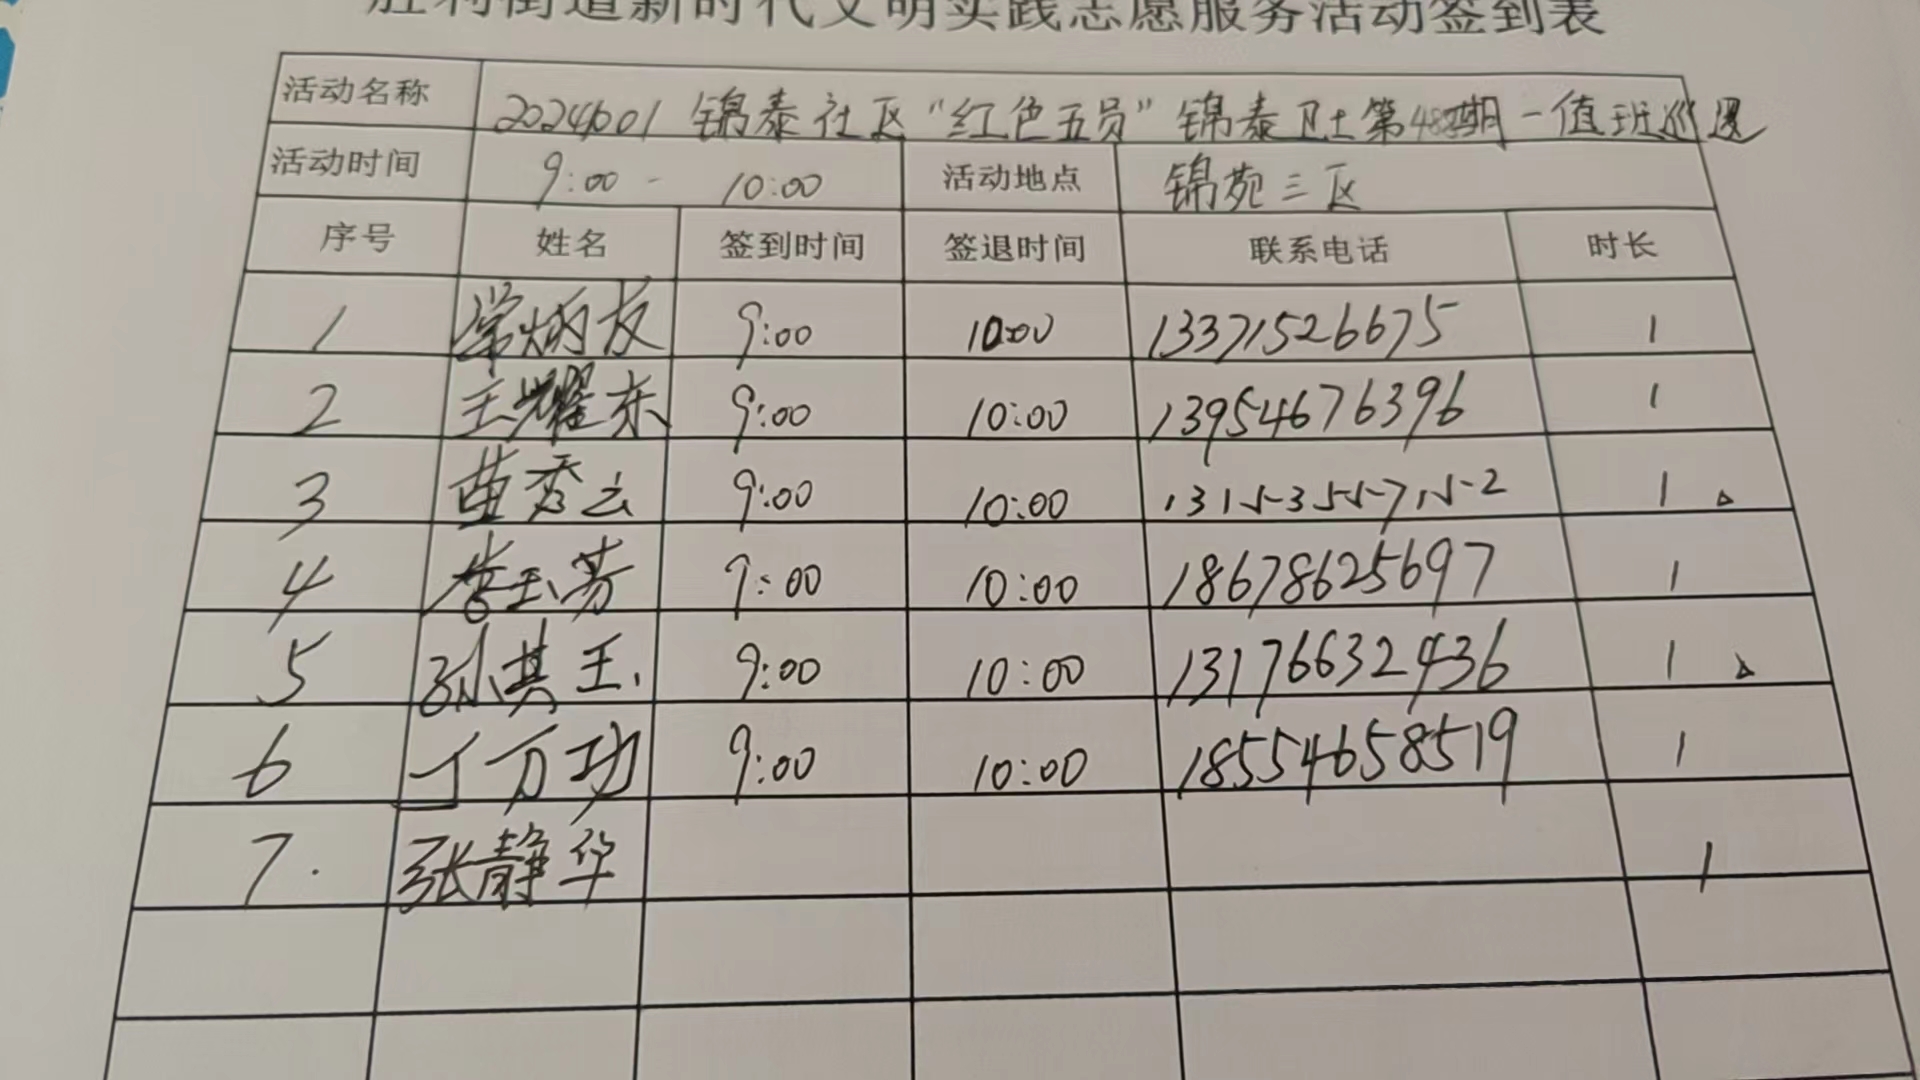 胜利街道新时代文明实践志愿服务活动签到表
活动名称 20241001 锦泰社区“红色五员”锦泰卫士第 期-值班巡逻
活动时间 9:00 - 10:00 活动地点 锦苑三区
序号 姓名 签到时间 签退时间 联系电话 时长
1 常炳友 9:00 10:00 13371526675 1
2 王耀东 9:00 10:00 13954676396 1
3 苗秀云 9:00 10:00 13153557152 1 △
4 李玉芳 9:00 10:00 18678625697 1
5 孙其玉 9:00 10:00 13176632436 1 △
6 丁万功 9:00 10:00 18554658519 1
7. 张静华 1